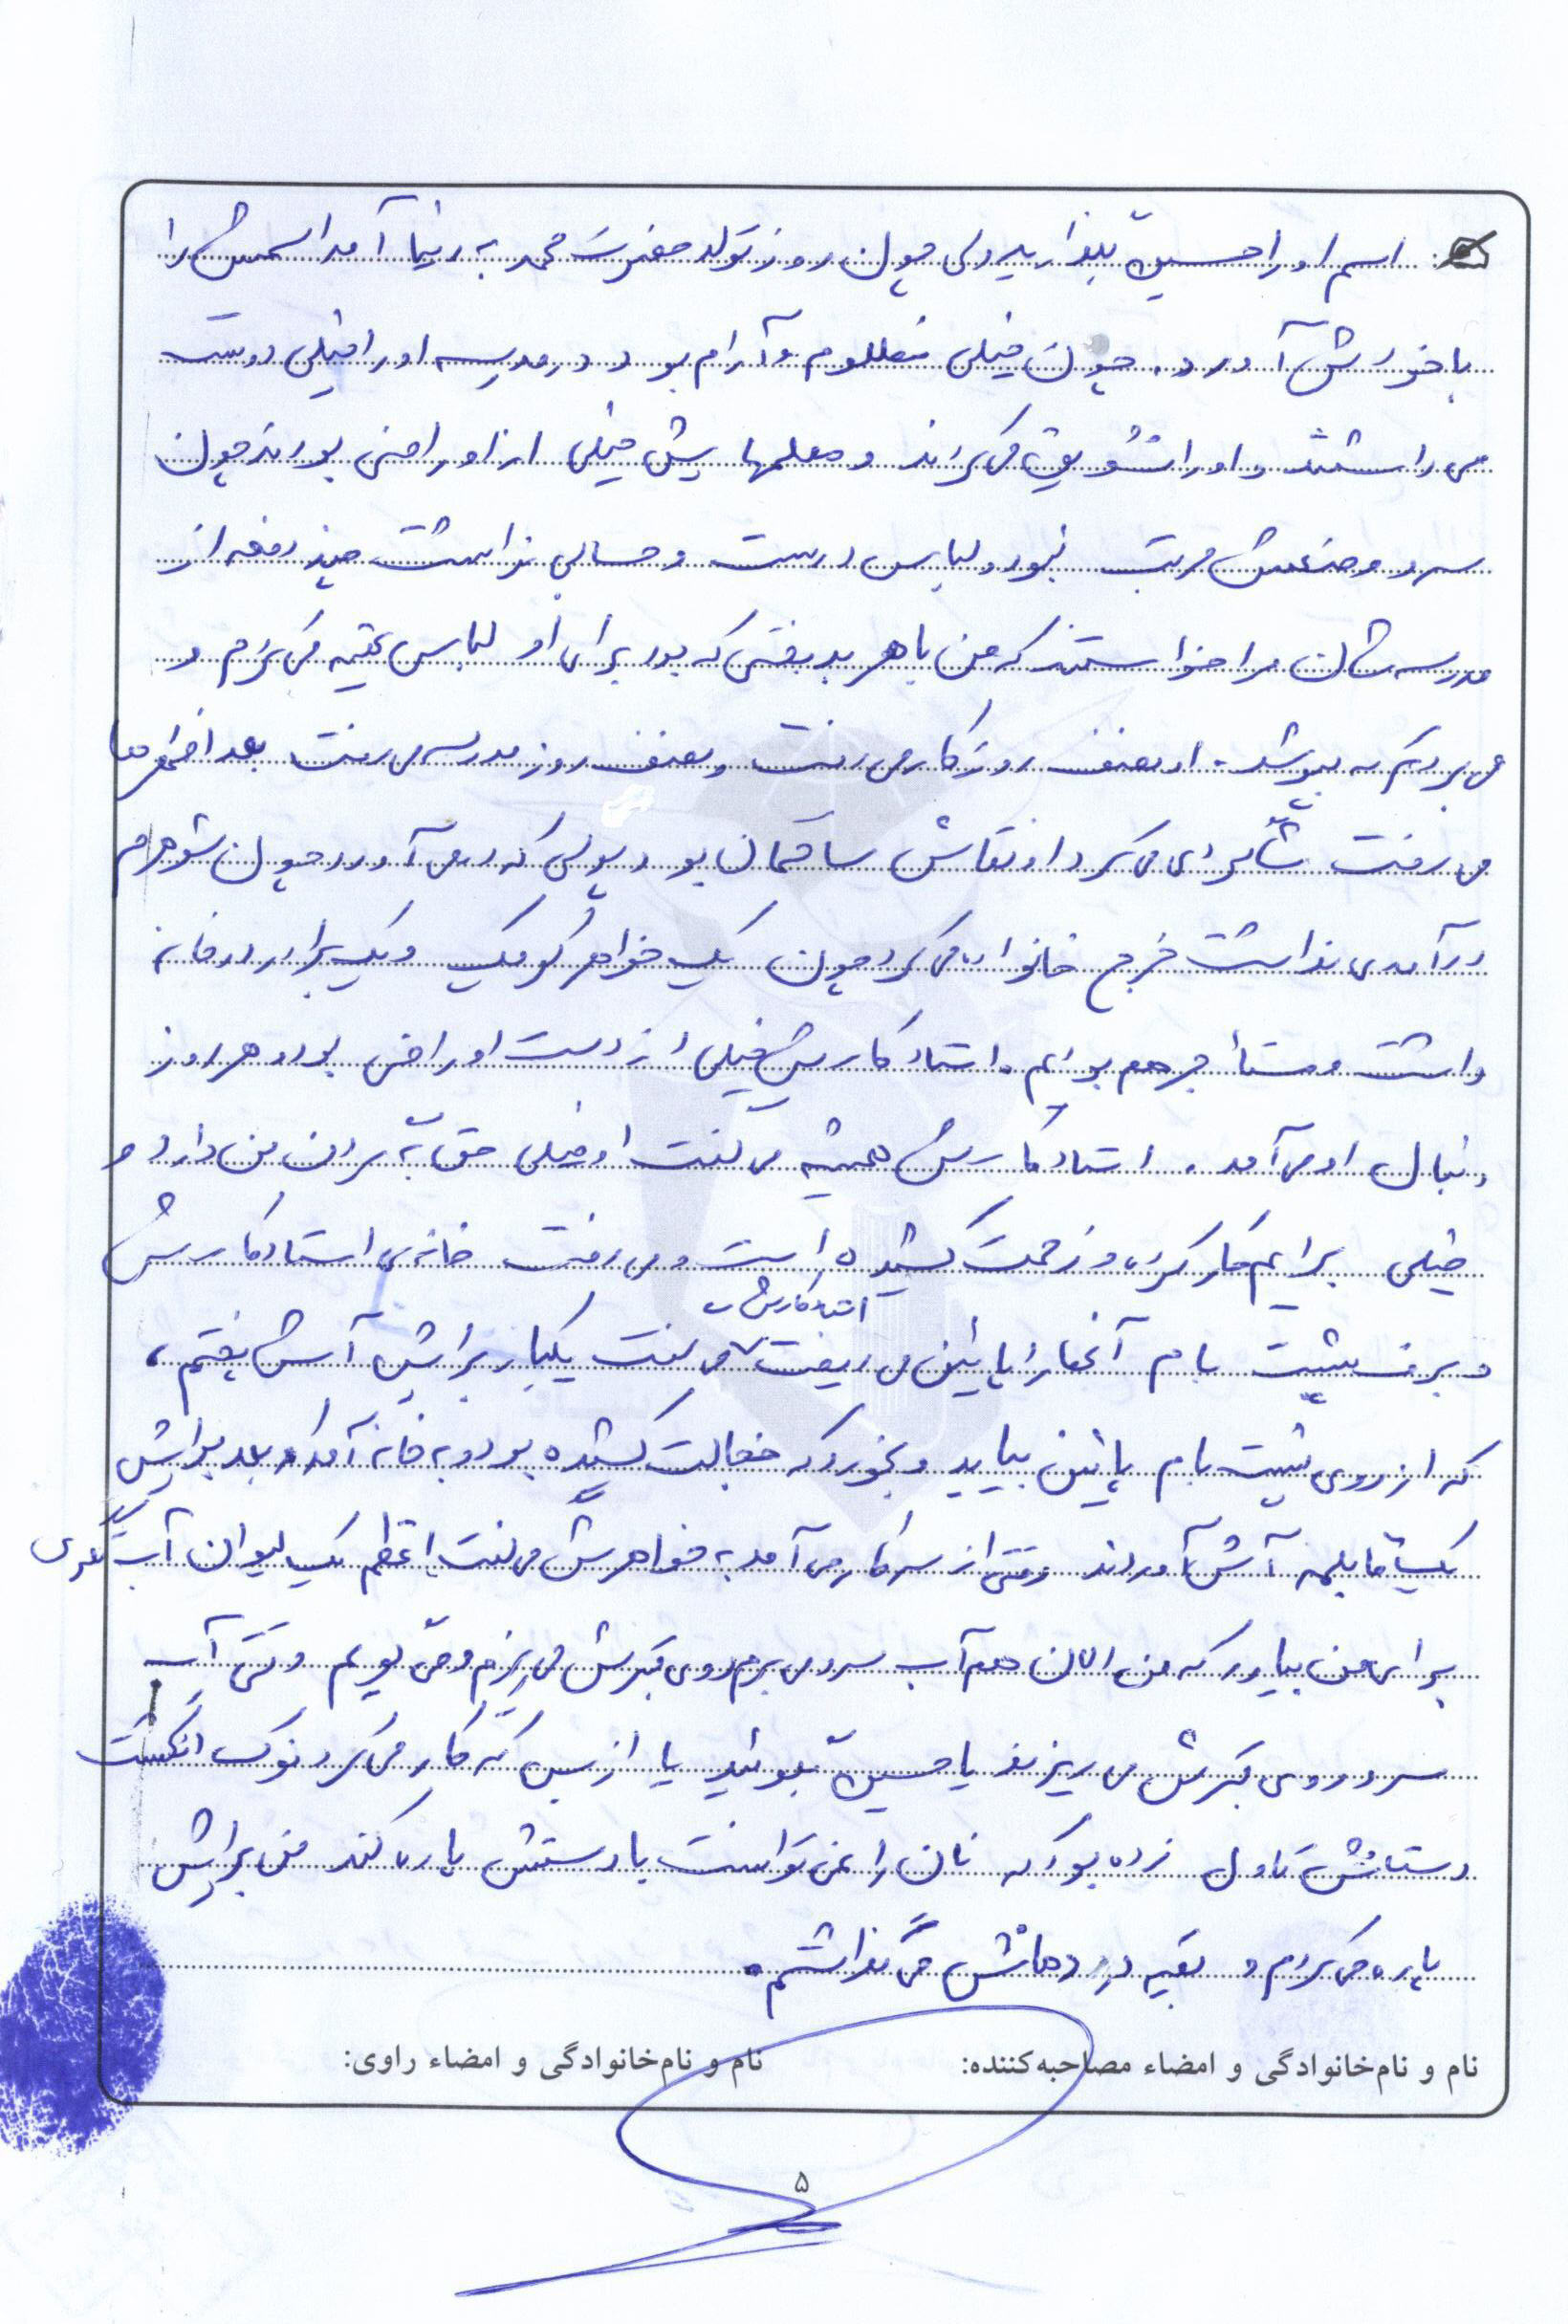 اسم او را حسین بگذارید ولی چون روز تولد حضرت محمد به دنیا آمد اسمش را
با خودش آورد. چون خیلی مظلوم و آرام بود در مدرسه او را خیلی دوست
می داشتند و او را تشویق می کردند و معلمها یش خیلی از او راضی بودند چون
سر و وضعش مرتب نبود و لباس درست و حسابی نداشت چند دفعه از
مدرسه شان مرا خواستند که من با هر بدبختی که بود برای او لباس تهیه می کردم و
می بردم که بپوشد. او نصف روز کار می رفت و نصف روز مدرسه می رفت بعد از ظهر ها
می رفت شاگردی می کرد او نقاش ساختمان بود و پولی که در می آورد چون شوهرم
درآمدی نداشت خرج خانواده می کرد چون یک خواهر کوچک و یک برادر در خانه
داشت و مستأجر هم بودیم. استاد کارش خیلی از دست او راضی بود و هر روز
دنبال او می آمد. استاد کارش همیشه می گفت او خیلی حق به گردن من دارد و
خیلی برایم کار کرده و زحمت کشیده است و می رفت خانه ی استاد کارش
و برف پشت بام آنها را پائین می ریخت استاد کارش می گفت یکبار برایش آش پختم،
که از روی پشت بام پائین بیاید و بخورد که خجالت کشیده بود و به خانه آمد و بعد برایش
یک قابلمه آش آوردند وقتی از سر کار می آمد به خواهرش می گفت اعظم یک لیوان آب سردی
برای من بیاور که من الان هم آب سرد می برم روی قبرش می ریزم و می گویم وقتی آب
سرد روی قبرش می ریزند یا حسین بگوئید یا از بس که کار می کرد نوک انگشت
دستانش تاول زده بود که نان را نمی توانست با دستش پاره کند من برایش
پاره می کردم و بقیه در دهانش می گذاشتم.
نام و نام‌خانوادگی و امضاء مصاحبه‌کننده: نام و نام‌خانوادگی و امضاء راوی:
۵